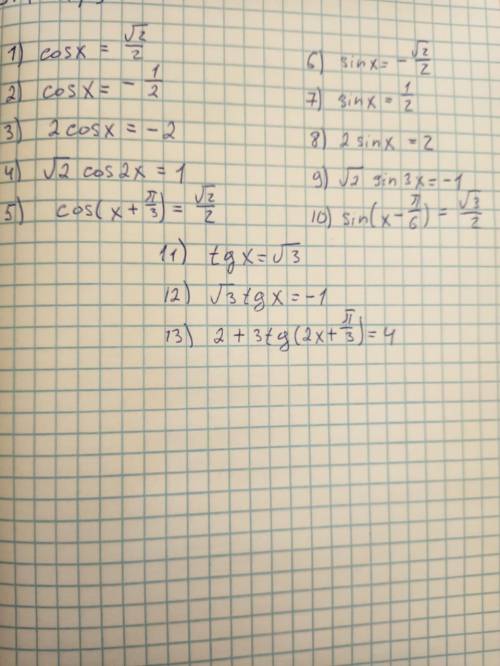 1) cosx = √2/2
2) cosx = - 1/2
3) 2cosx = -2
4) √2 cos2x = 1
5) cos(x + π/3) = √2/2
6) sinx = - √2/2
7) sinx = 1/2
8) 2sinx = 2
9) √2 sin3x = -1
10) sin(x - π/6) = √3/2
11) tgx = √3
12) √3 tgx = -1
13) 2 + 3tg(2x + π/3) = 4